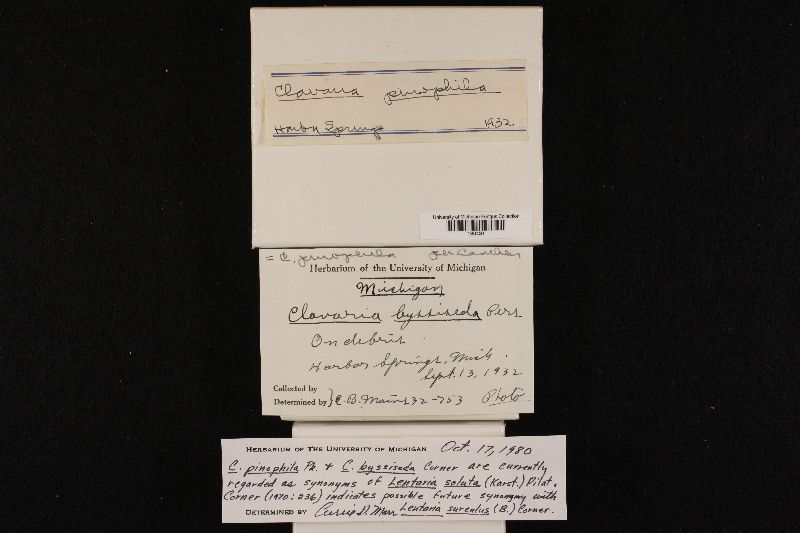 Clavaria pinophila
Harbor Springs 1932.
University of Michigan Fungus Collection
= C. pinophila
Herbarium of the University of Michigan
Michigan
Clavaria byssiseda Pers
On debris
Harbor Springs, Mich.
Sept. 13, 1932
Collected by
Determined by } E.B. Mains 32-753 Photo
HERBARIUM OF THE UNIVERSITY OF MICHIGAN Oct. 17, 1980
C. pinophila Pk. & C. byssiseda Corner are currently
regarded as synonyms of Lentaria soluta (Karst.) Pilat.
Corner (1970: 236) indicates possible future synonymy with
DETERMINED BY Currie D. Marr Lentaria surculus (B.) Corner.